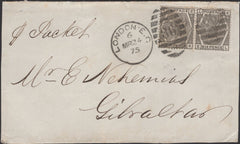 p Packet
LONDON·E.C
6
MR 24
75
Mr E Nehemias
Gibraltar